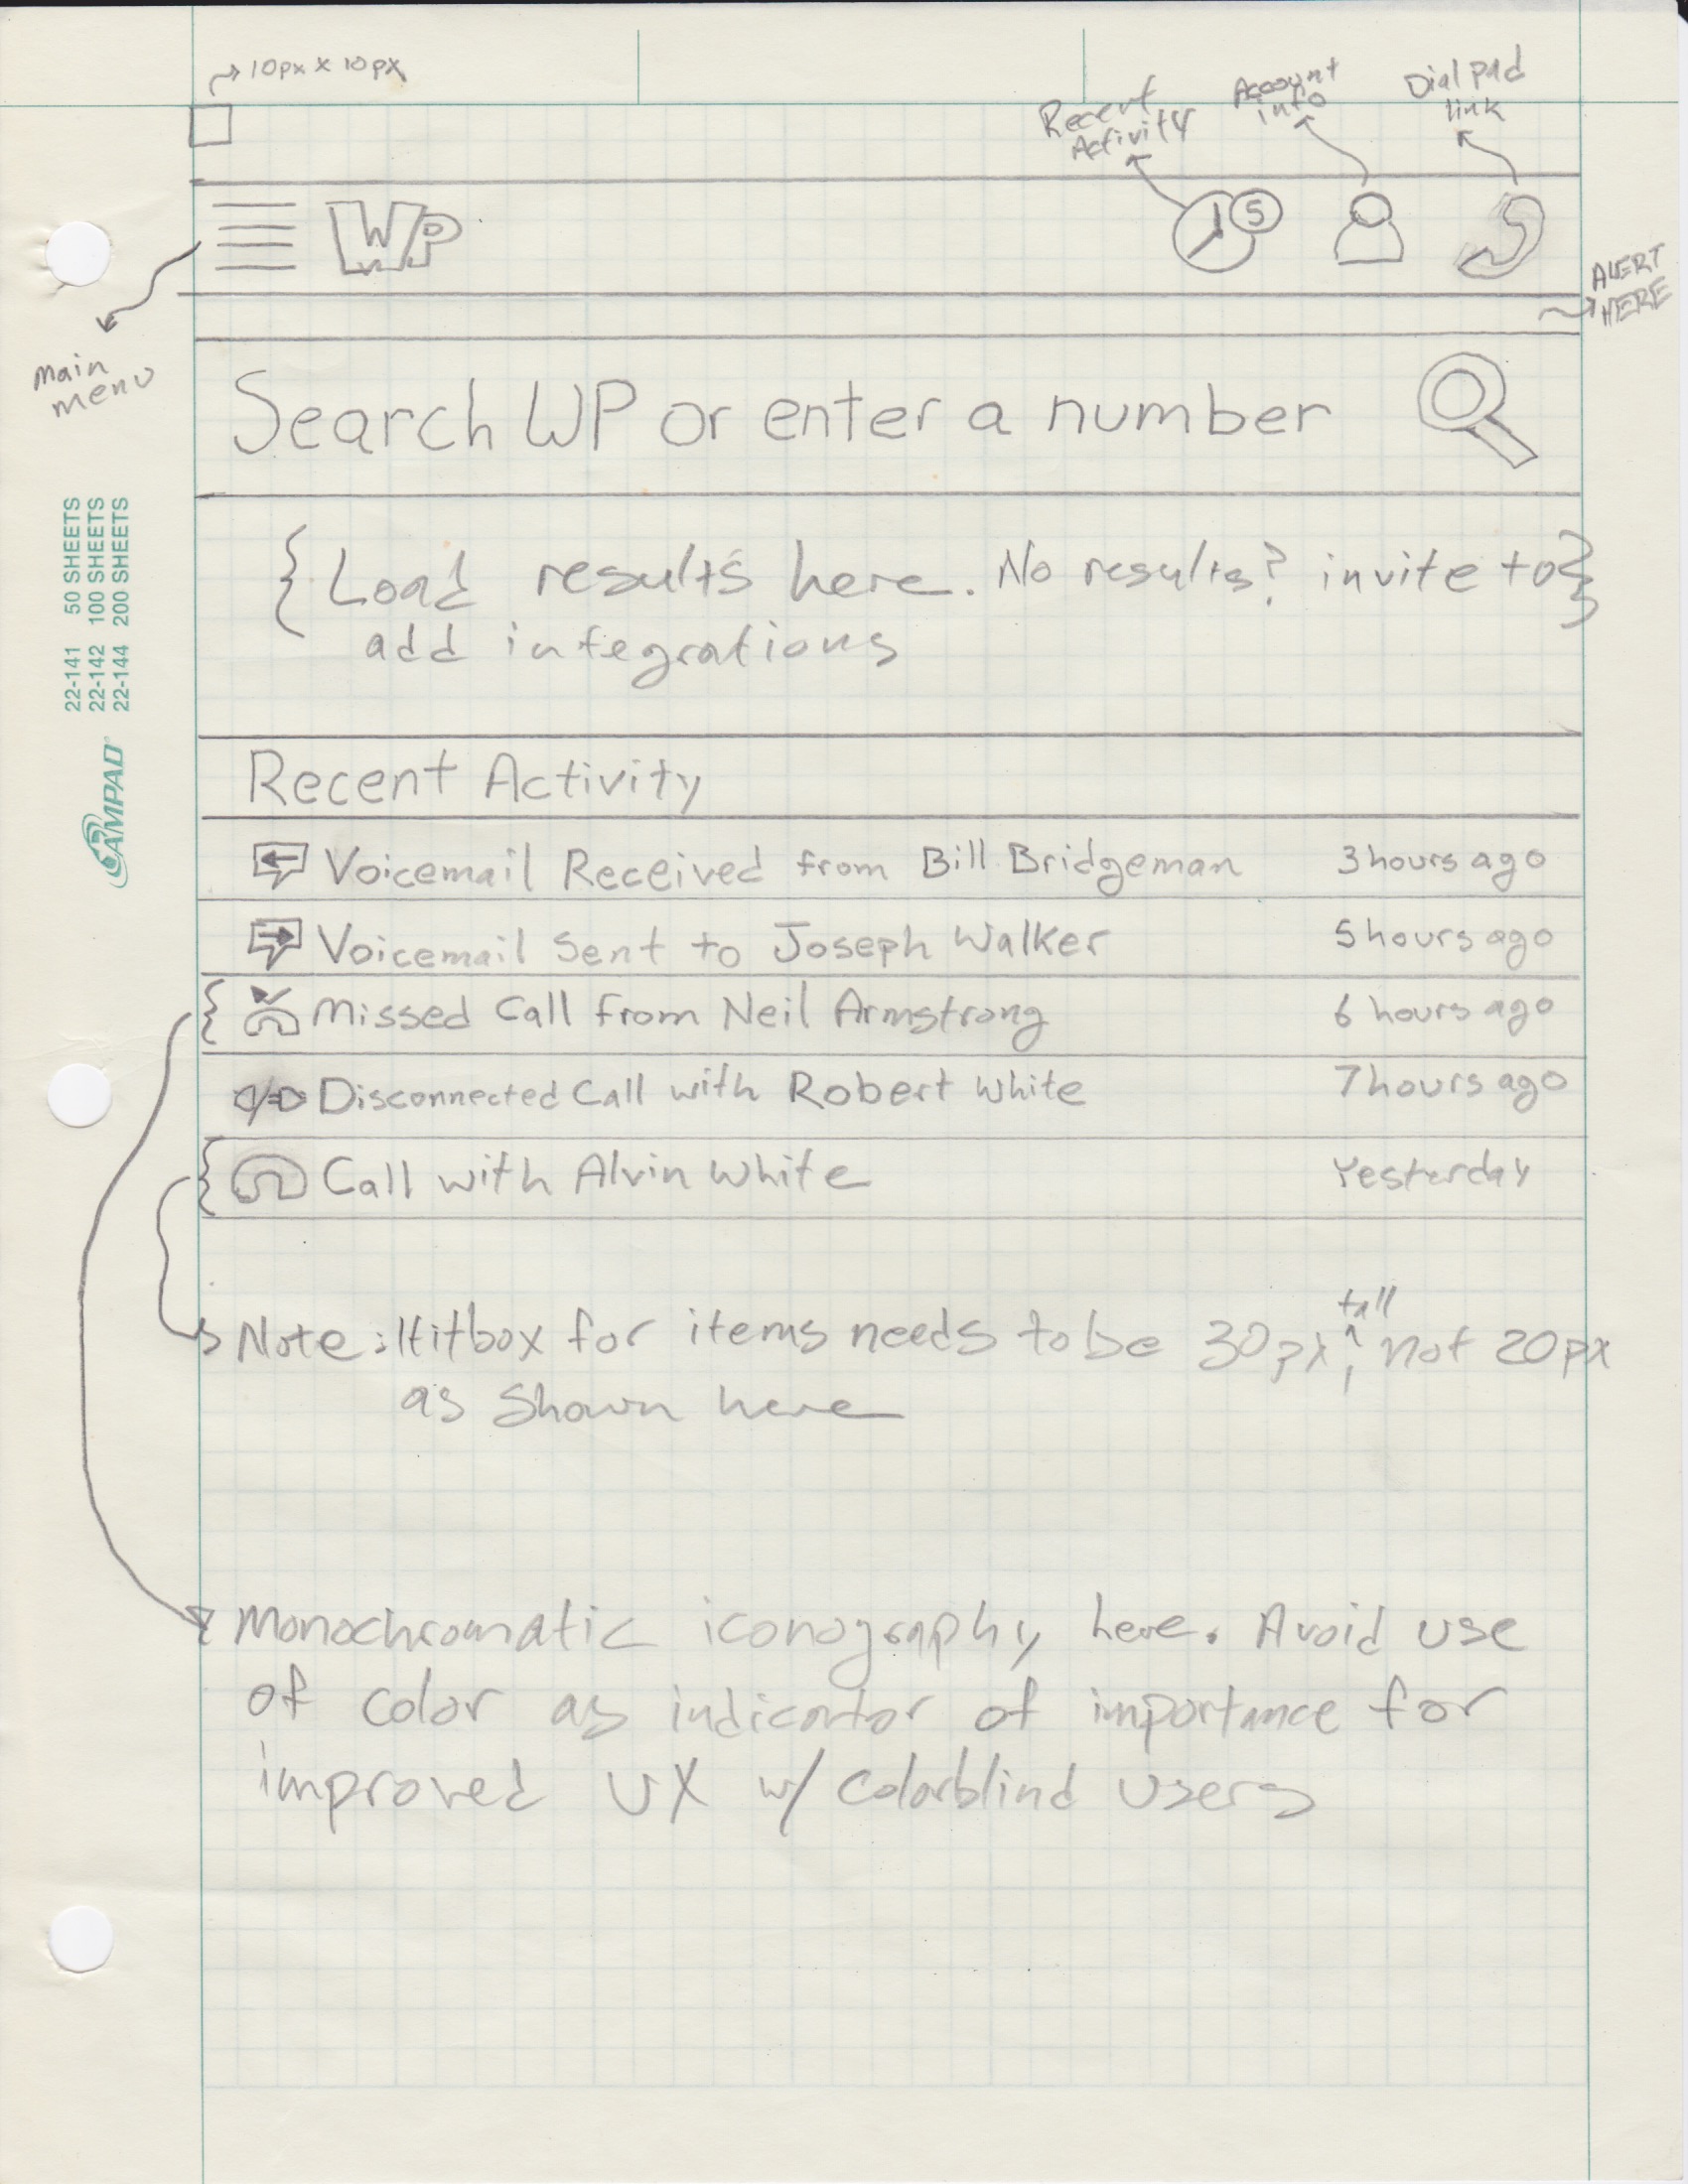 10px x 10px
Recent
Activity
Account
info
Dial pad
link
WP
5
ALERT
HERE
main
menu
Search WP or enter a number
{ Load results here. No results? invite to }
add integrations
Recent Activity
Voicemail Received from Bill Bridgeman 3 hours ago
Voicemail Sent to Joseph Walker 5 hours ago
{ Missed Call from Neil Armstrong 6 hours ago
Disconnected Call with Robert White 7 hours ago
{ Call with Alvin White Yesterday
tall
Note: Hitbox for items needs to be 30px, not 20px
as shown here
Monochromatic iconography here. Avoid use
of color as indicator of importance for
improved UX w/ colorblind users
22-141 50 SHEETS
22-142 100 SHEETS
22-144 200 SHEETS
AMPAD